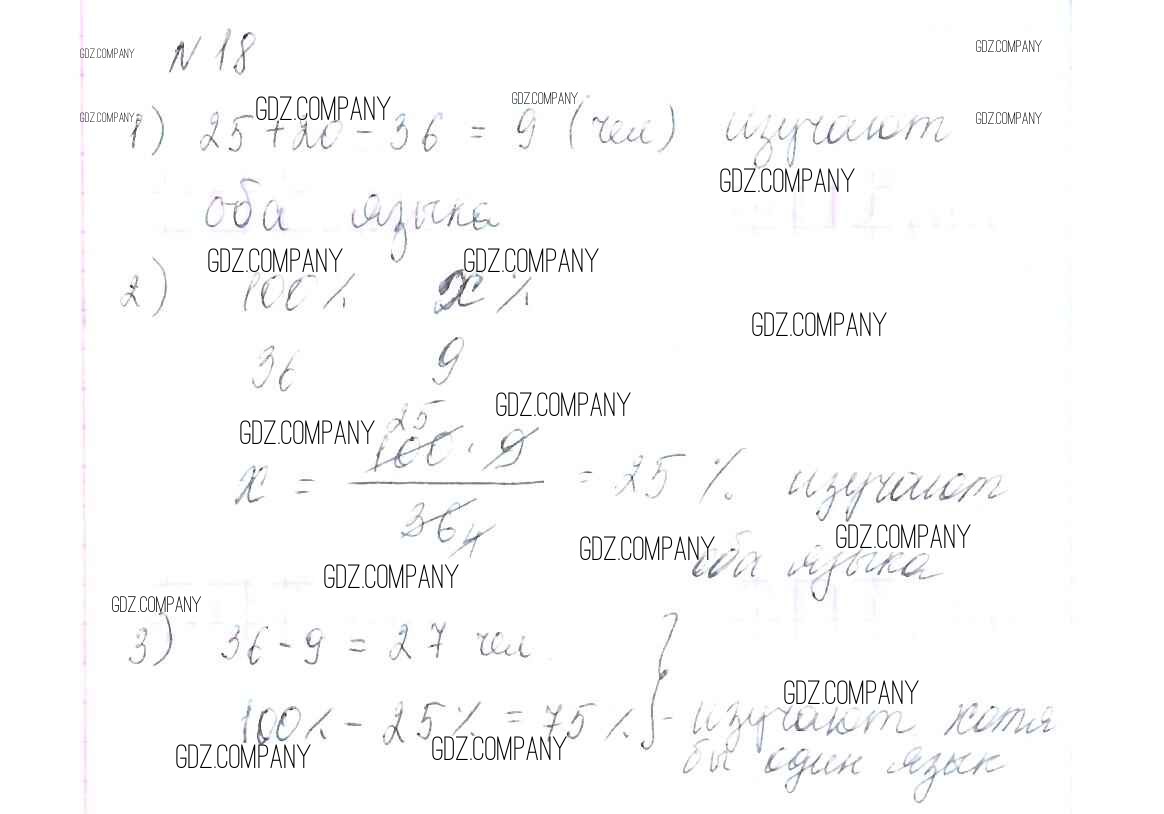 GDZ.COMPANY
N 18
GDZ.COMPANY
GDZ.COMPANY
GDZ.COMPANY
GDZ.COMPANY
GDZ.COMPANY
1) 25+20-36 = 9 (чел) изучают
GDZ.COMPANY
оба языка
GDZ.COMPANY GDZ.COMPANY
2) 100% x%
GDZ.COMPANY
36 9
GDZ.COMPANY
25
GDZ.COMPANY
x = 100 · 9 / 36 4 = 25 % изучают
GDZ.COMPANY GDZ.COMPANY
оба языка
GDZ.COMPANY
GDZ.COMPANY
3) 36-9 = 27 чел
GDZ.COMPANY
100% - 25% = 75% } - изучают хотя
GDZ.COMPANY GDZ.COMPANY
бы один язык